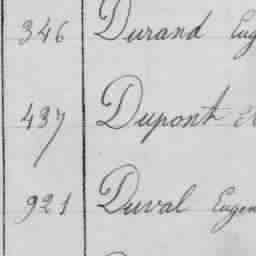 346 Durand Eug
437 Dupont
921 Duval Eugen